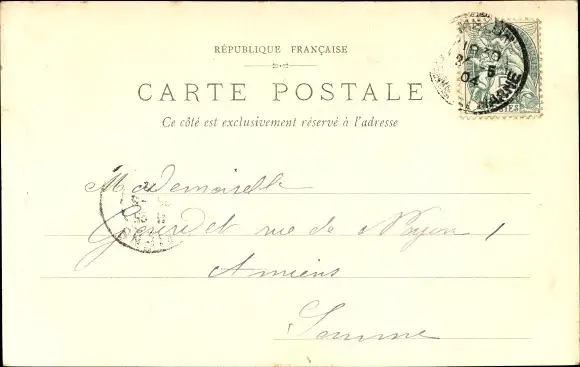 RÉPUBLIQUE FRANÇAISE
CARTE POSTALE
Ce côté est exclusivement réservé à l'adresse
MARNE
04
Mademoiselle
rue de Noyon 1
Amiens
Somme